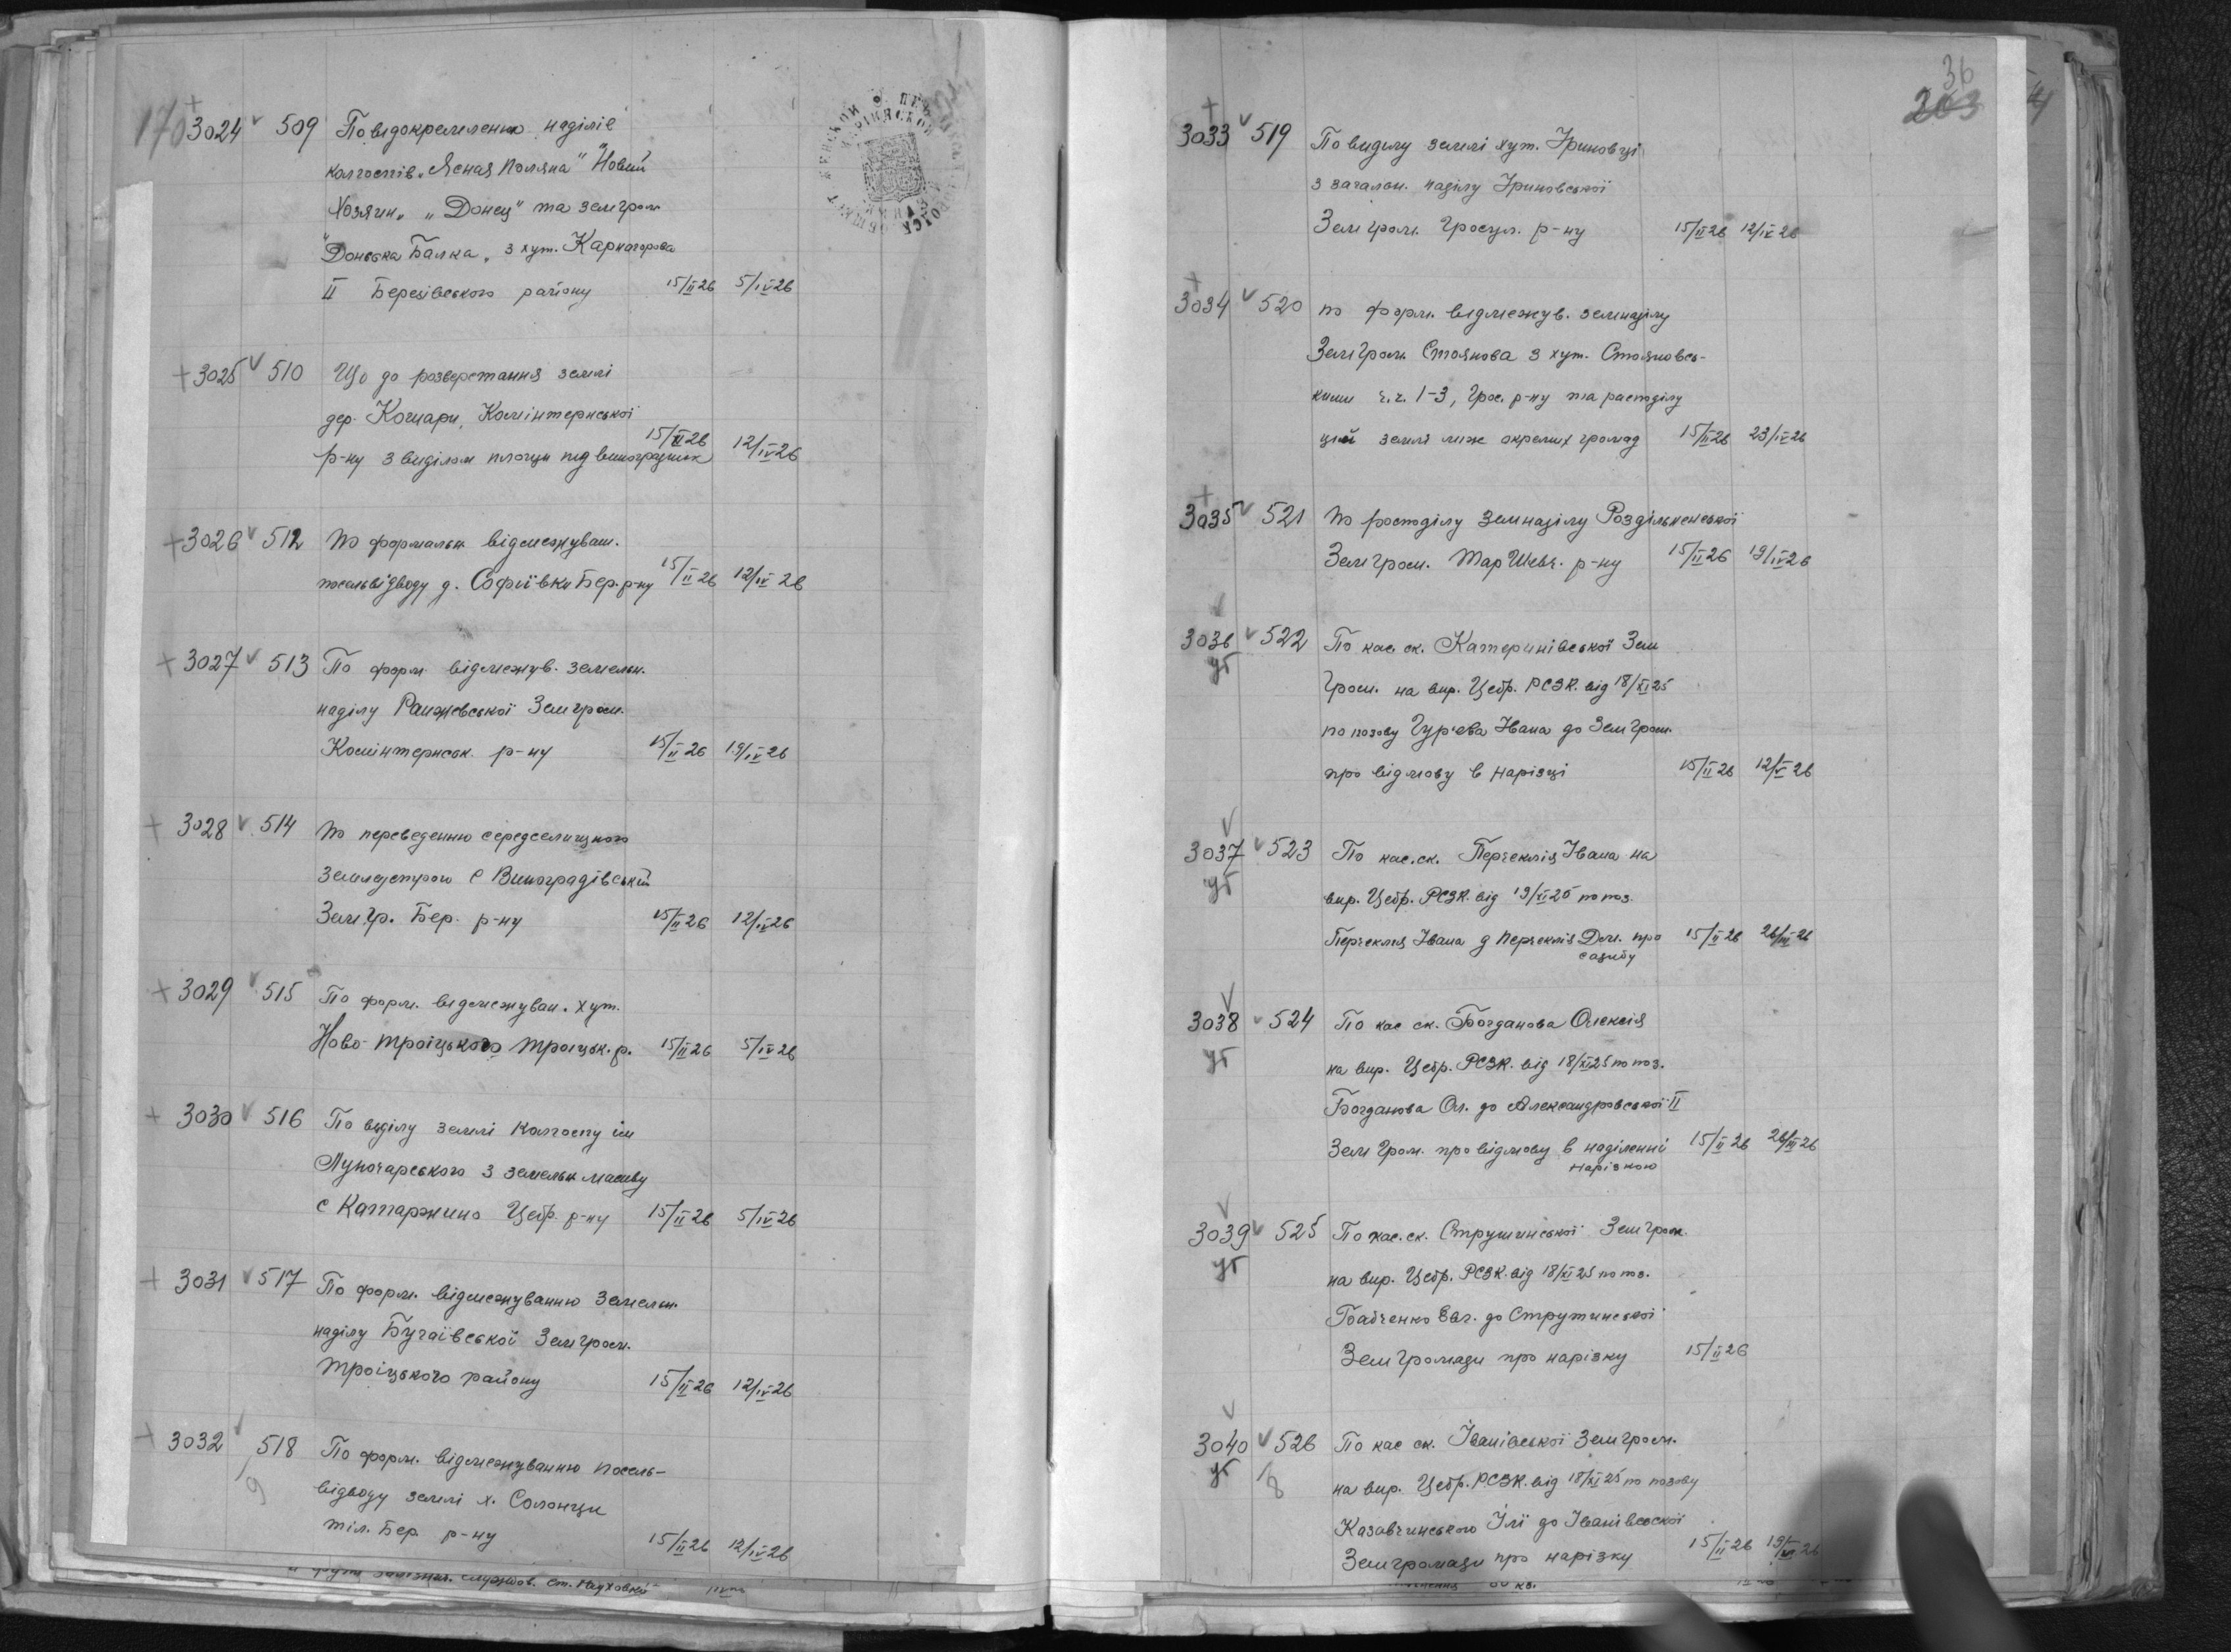 170 3024 509 По відокремленню наділів
колгоспів „Ясная Поляна" "Новий
Хозяин„ „Донец" та земгром
"Донська Балка„ з хут. Карногорова
II Березівського району 15/II 26 5/IV 26
3025 510 Що до розверстання землі
дер. Кошари, Комінтернської
р-ну з виділом площи під виноградник 15/II 26 12/IV 26
3026 512 По формальн відмежуван.
посельвідводу д. Софиівки Бер. р-ну 15/II 26 12/IV 26
3027 513 По форм. відмежув. земельн.
наділу Ранжевської Земгром.
Комінтернськ. р-ну 15/II 26 19/IV 26
3028 514 По переведенню середселищного
землеустрою с Виноградівській
Земгр. Бер. р-ну 15/II 26 12/IV 26
3029 515 По форм. видмежуван. хут.
Ново-Троіцького Троіцьк. р. 15/II 26 5/IV 26
3030 516 По виділу землі колгоспу ім
Луночарського з земельн масиву
с Катаржино Цебр. р-ну 15/II 26 5/IV 26
3031 517 По форм. відмежуванню земельн.
наділу Бучаївської Земгром.
Троіцького району 15/II 26 12/IV 26
3032 518 По форм. відмежуванню посель-
9 відводу землі х. Солонци
Бер. р-ну 15/II 26 12/IV 26
36
203
3033 519 По виділу землі хут. Гриновці
з загальн. наділу Гриновської
Земгром. Гросул. р-ну 15/II 26 12/IV 26
3034 520 по форм. видмежув. земнаділу
Земгром. Стоянова з хут. Стояновсь-
кими ч.ч. 1-3, Грос. р-ну та расподілу
ціей землі між окремих громад 15/II 26 23/IV 26
3035 521 По росподілу земнаділу Роздільненської
Земгром. ТарШевч. р-ну 15/II 26 19/IV 26
3036 522 По кас. ск. Катеринівської Зем
Гром. на вир. Цебр. РСЗК. від 18/XI 25
по позову Гур'ева Івана до Земгром.
про відмову в нарізці 15/II 26 12/V 26
3037 523 По кас. ск. Перчеклія Івана на
вир. Цебр. РСЗК. від 19/XI 25 по поз.
Перчеклія Івана д Перчеклія Дем. про 15/II 26 26/III 26
садибу
3038 524 По кас ск. Богданова Олексія
на вир. Цебр. РСЗК. від 18/XI 25 по поз.
Богданова Ол. до Александровської II
Земгром. про відмову в наділенні 15/II 26 26/III 26
нарізкою
3039 525 По кас. ск. Струтинської Земгром.
на вир. Цебр. РСЗК. від 18/XI 25 по поз.
Бабченко Евг. до Струтинської
Земгромади про нарізку 15/II 26
3040 526 По кас ск. Іванівської Земгром.
8 на вир. Цебр. РСЗК. від 18/XI 25 по позову
Казавчинського Ілі до Іванівської
Земгромади про нарізку 15/II 26